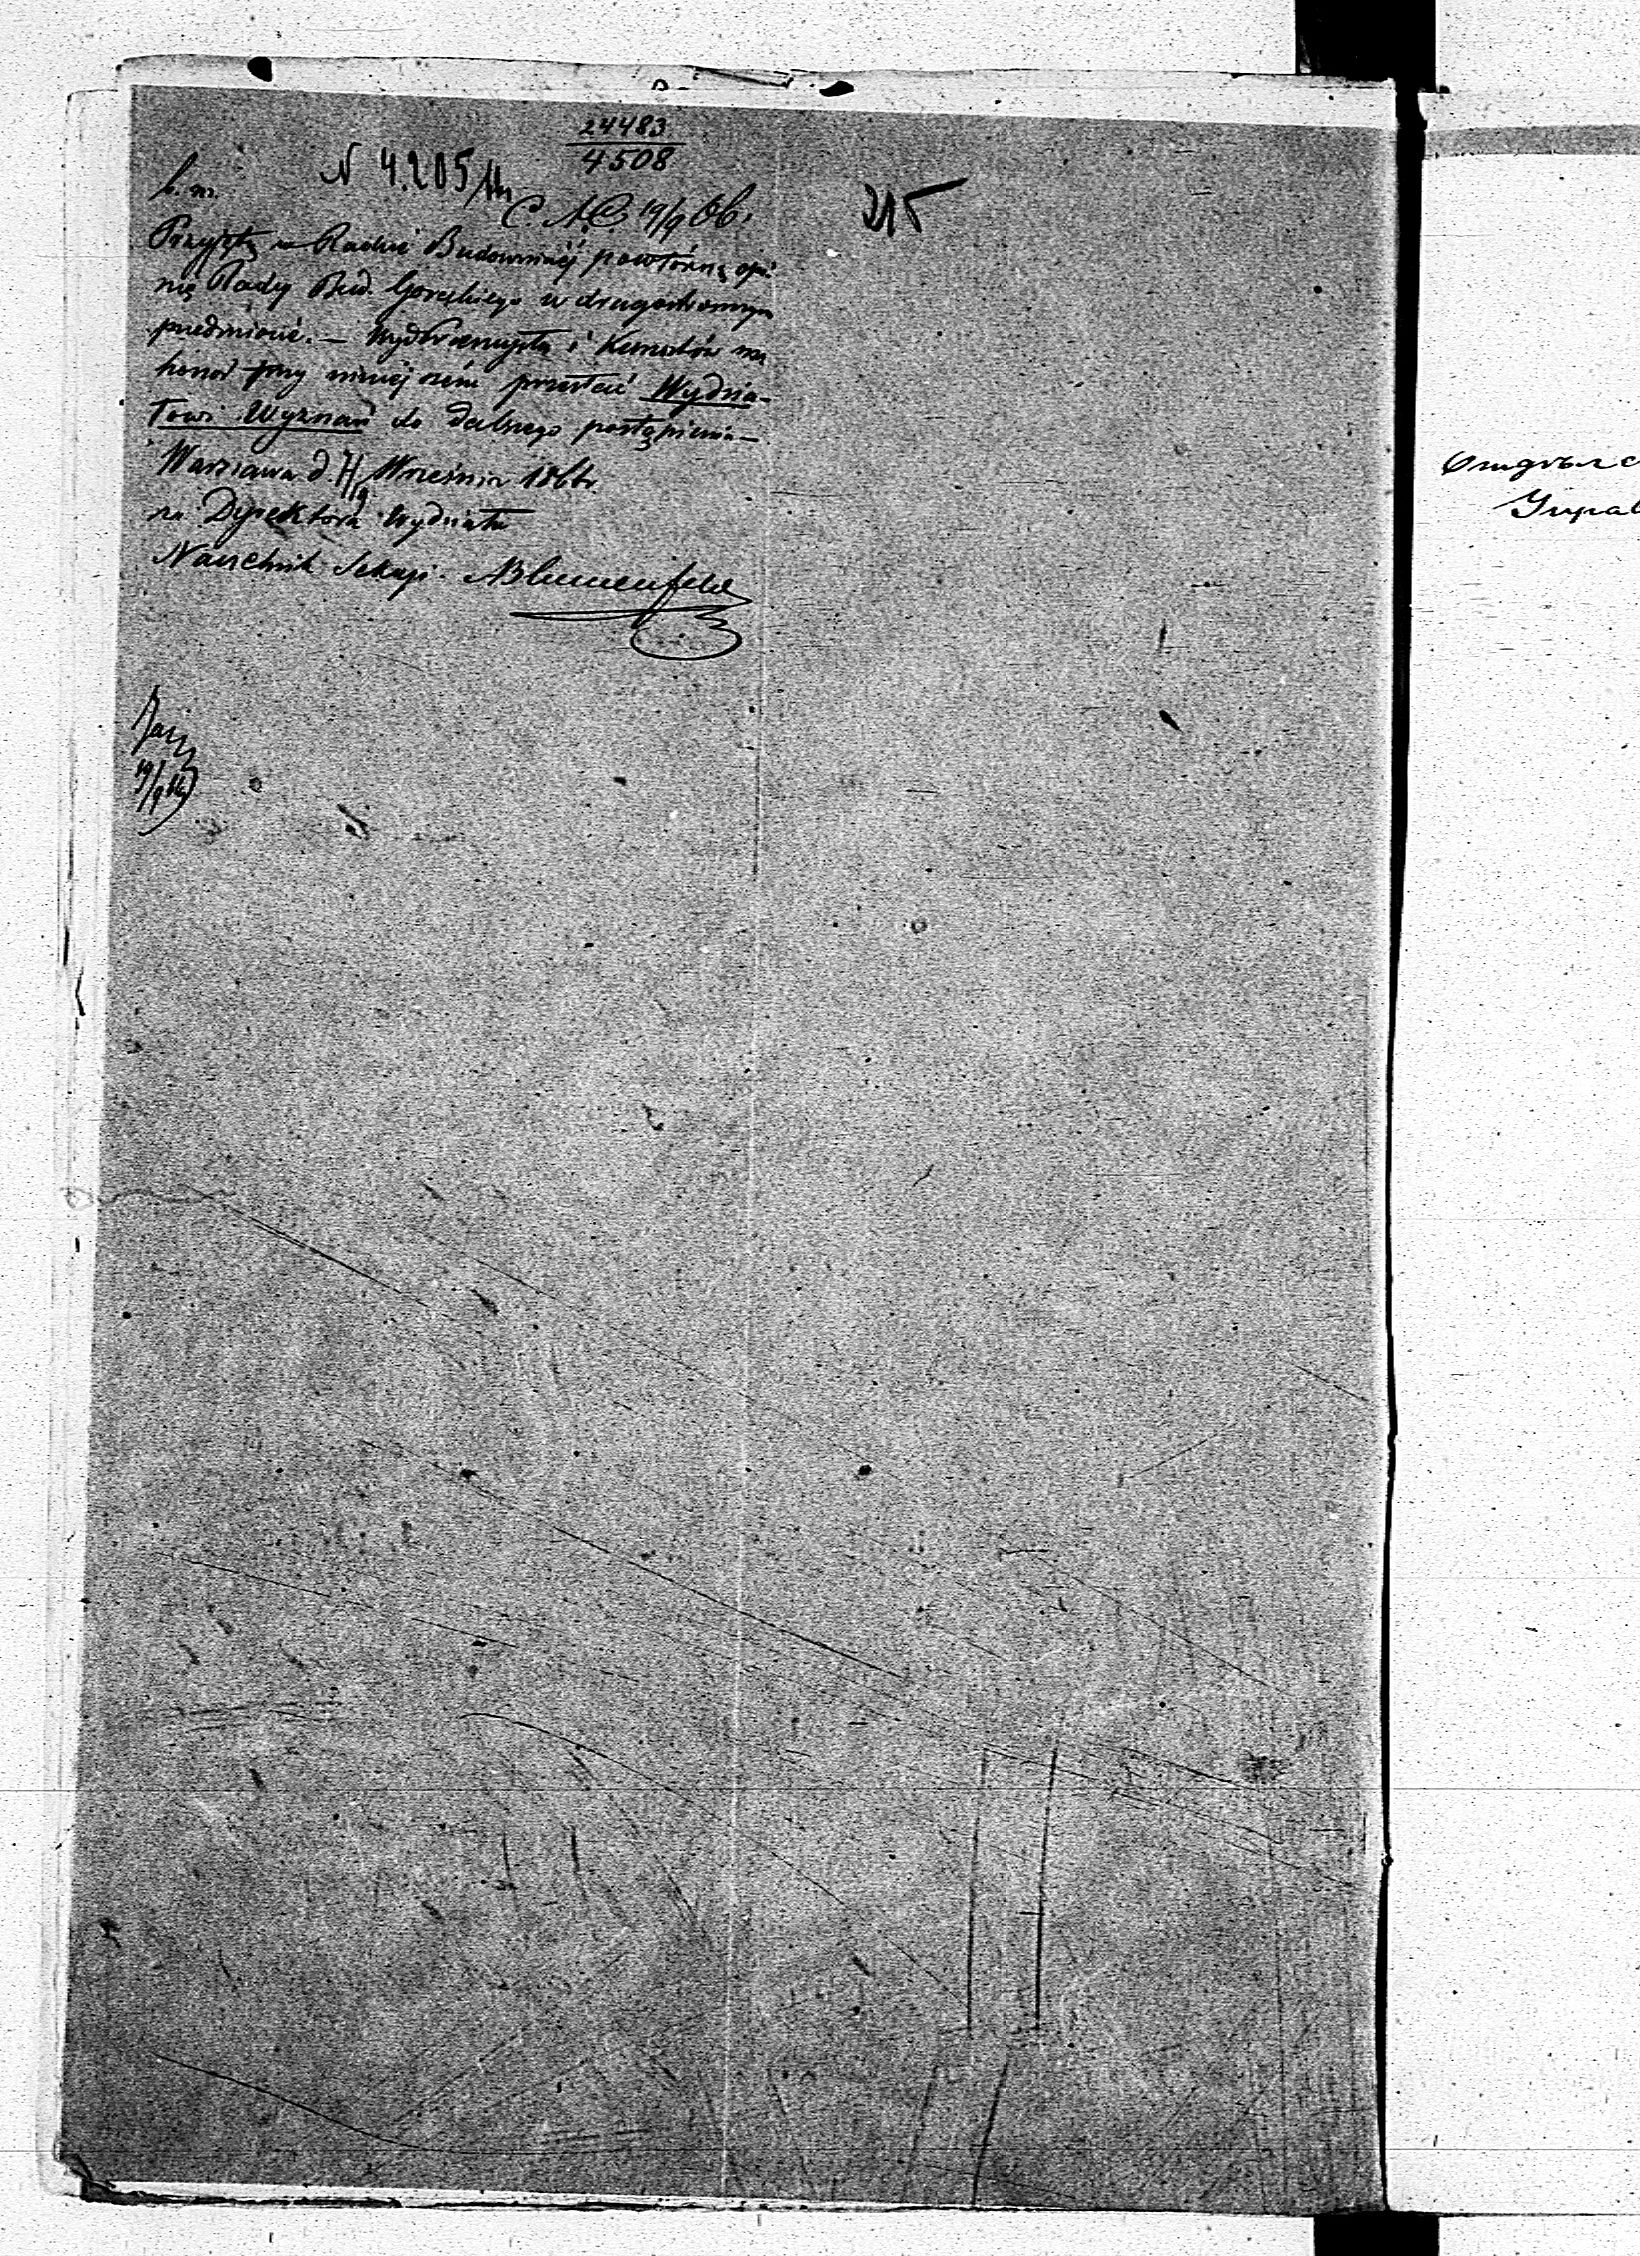 24483
4508
N 4.205
215
b. m.
19/9 66.
Przyjętą w Radzie Budowniczéj powtórną opi-
nię Rady Bud. Goreckiego w drugostronnym
przedmiocie. —
przy niniejszém przesłać Wydzia-
łowi Wyznań do dalszego postąpienia —
Warszawa d. 7/19 Września 1866 r.
za Dyrektora Wydziału
Naczelnik Sekcyi. Blumenfeld
19/9